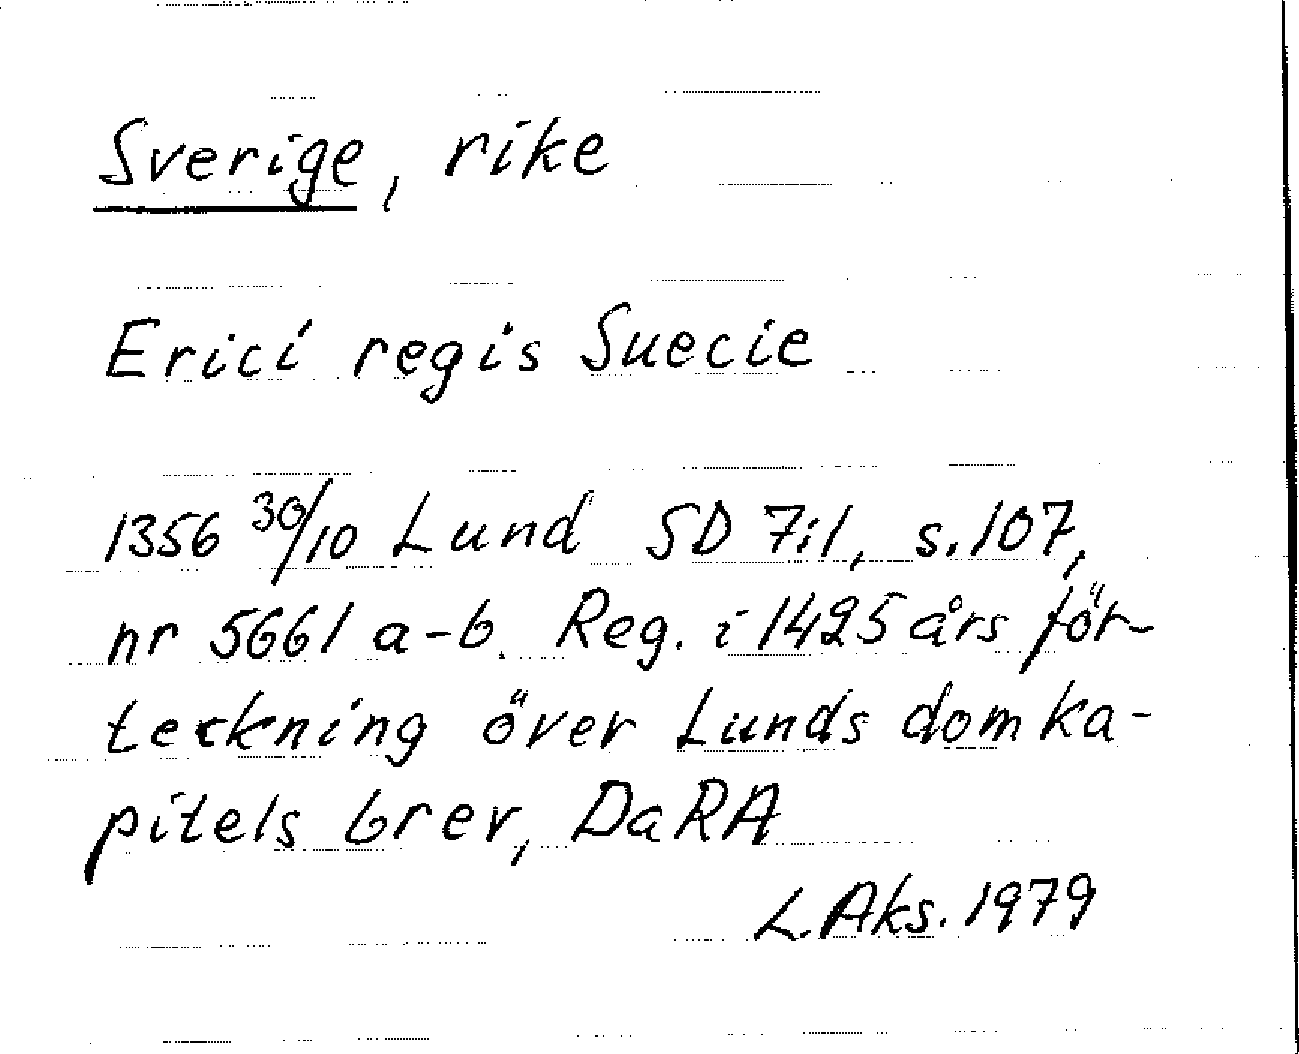 Sverige, rike
Erici regis Suecie
1356 30/10 Lund SD 7:1, s. 107,
nr 5661 a-b. Reg. i 1425 års för-
teckning över Lunds domka-
pitels brev, DaRA
L. Aks. 1979